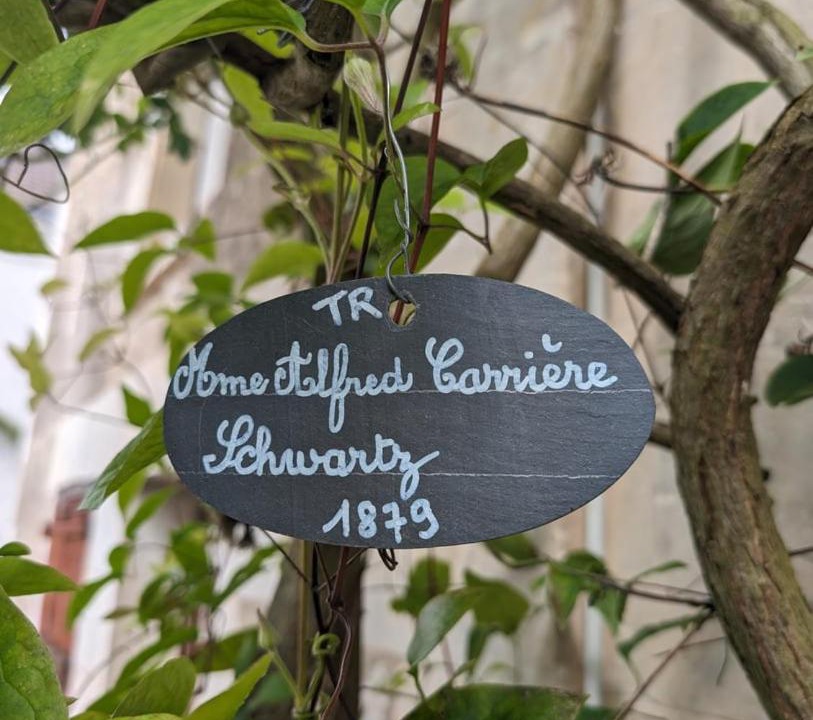 TR
Mme Alfred Carrière
Schwartz
1879